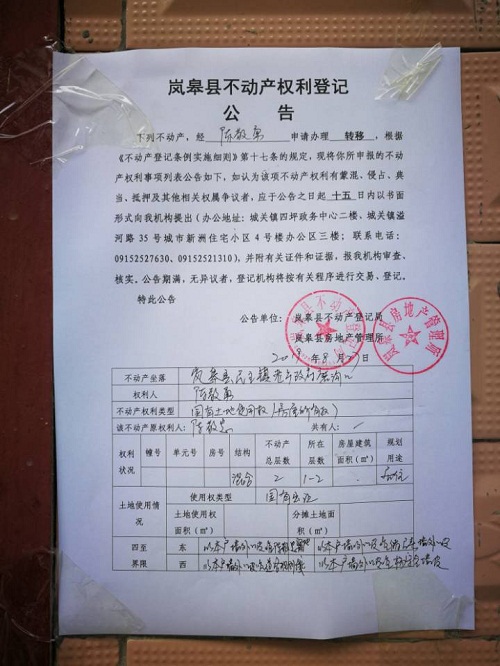 岚皋县不动产权利登记
公 告
下列不动产，经 陈敬勇 申请办理 转移，根据
《不动产登记条例实施细则》第十七条的规定，现将你所申报的不动
产权利事项列表公告如下，如认为该项不动产权利有蒙混、侵占、典
当、抵押及其他相关权属争议者，应于公告之日起 十五日内以书面
形式向我机构提出（办公地址：城关镇四坪政务中心二楼、城关镇溢
河路 35 号城市新洲住宅小区 4 号楼办公区三楼；联系电话：
09152527630、09152521310），并附有关证件和证据，报我机构审查、
核实。公告期满，无异议者，登记机构将按有关程序进行交易、登记。
特此公告
公告单位： 岚皋县不动产登记局
岚皋县房地产管理所
2019年8月27日
不动产坐落 岚皋县民主镇
权利人 陈敬勇
不动产权利类型 国有土地使用权/房屋所有权
该不动产原权利人： 陈敬 共有人：
权利状况 幢号 单元号 房号 结构 不动产总层数 所在层数 房屋建筑面积（㎡） 规划用途
混合 2 1-2 住宅
土地使用情况 使用权类型 国有出让
土地使用权面积（㎡） 分摊土地面积（㎡）
四至界限 东 以本户墙外
西 以本户墙外
岚皋县房地产管理所